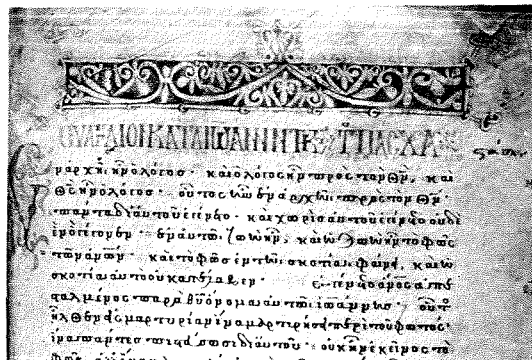 ΚΑΤΑ ΙΩΑΝΝΗΝ ΠΑΣΧΑ
Ἐν ἀρχῆ ἦν ὁ λόγος· καὶ ὁ λόγος ἦν πρὸς τὸν θν, καὶ
θς ἦν ὁ λόγος· οὗτος ἦν ἐν ἀρχῆ πρὸς τὸν θν·
πάντα δι' αὐτοῦ ἐγένετο· καὶ χωρὶς αὐτοῦ ἐγένετο οὐδὲ
ἓν ὃ γέγονεν· ἐν αὐτῶ ζωὴ ἦν, καὶ ἡ ζωὴ ἦν τὸ φῶς
τῶν ἀνῶν· καὶ τὸ φῶς ἐν τῆ σκοτία φαίνει, καὶ ἡ
σκοτία αὐτὸ οὐ κατέλαβεν· ἐγένετο ἄνος ἀπε
σταλμένος παρὰ θυ ὄνομα αὐτῶ ἰωάννης· οὗτος
ἦλθεν εἰς μαρτυρίαν ἵνα μαρτυρήση περὶ τοῦ φωτός·
ἵνα πάντες πιστεύσωσι δι' αὐτοῦ· οὐκ ἦν ἐκεῖνος τὸ